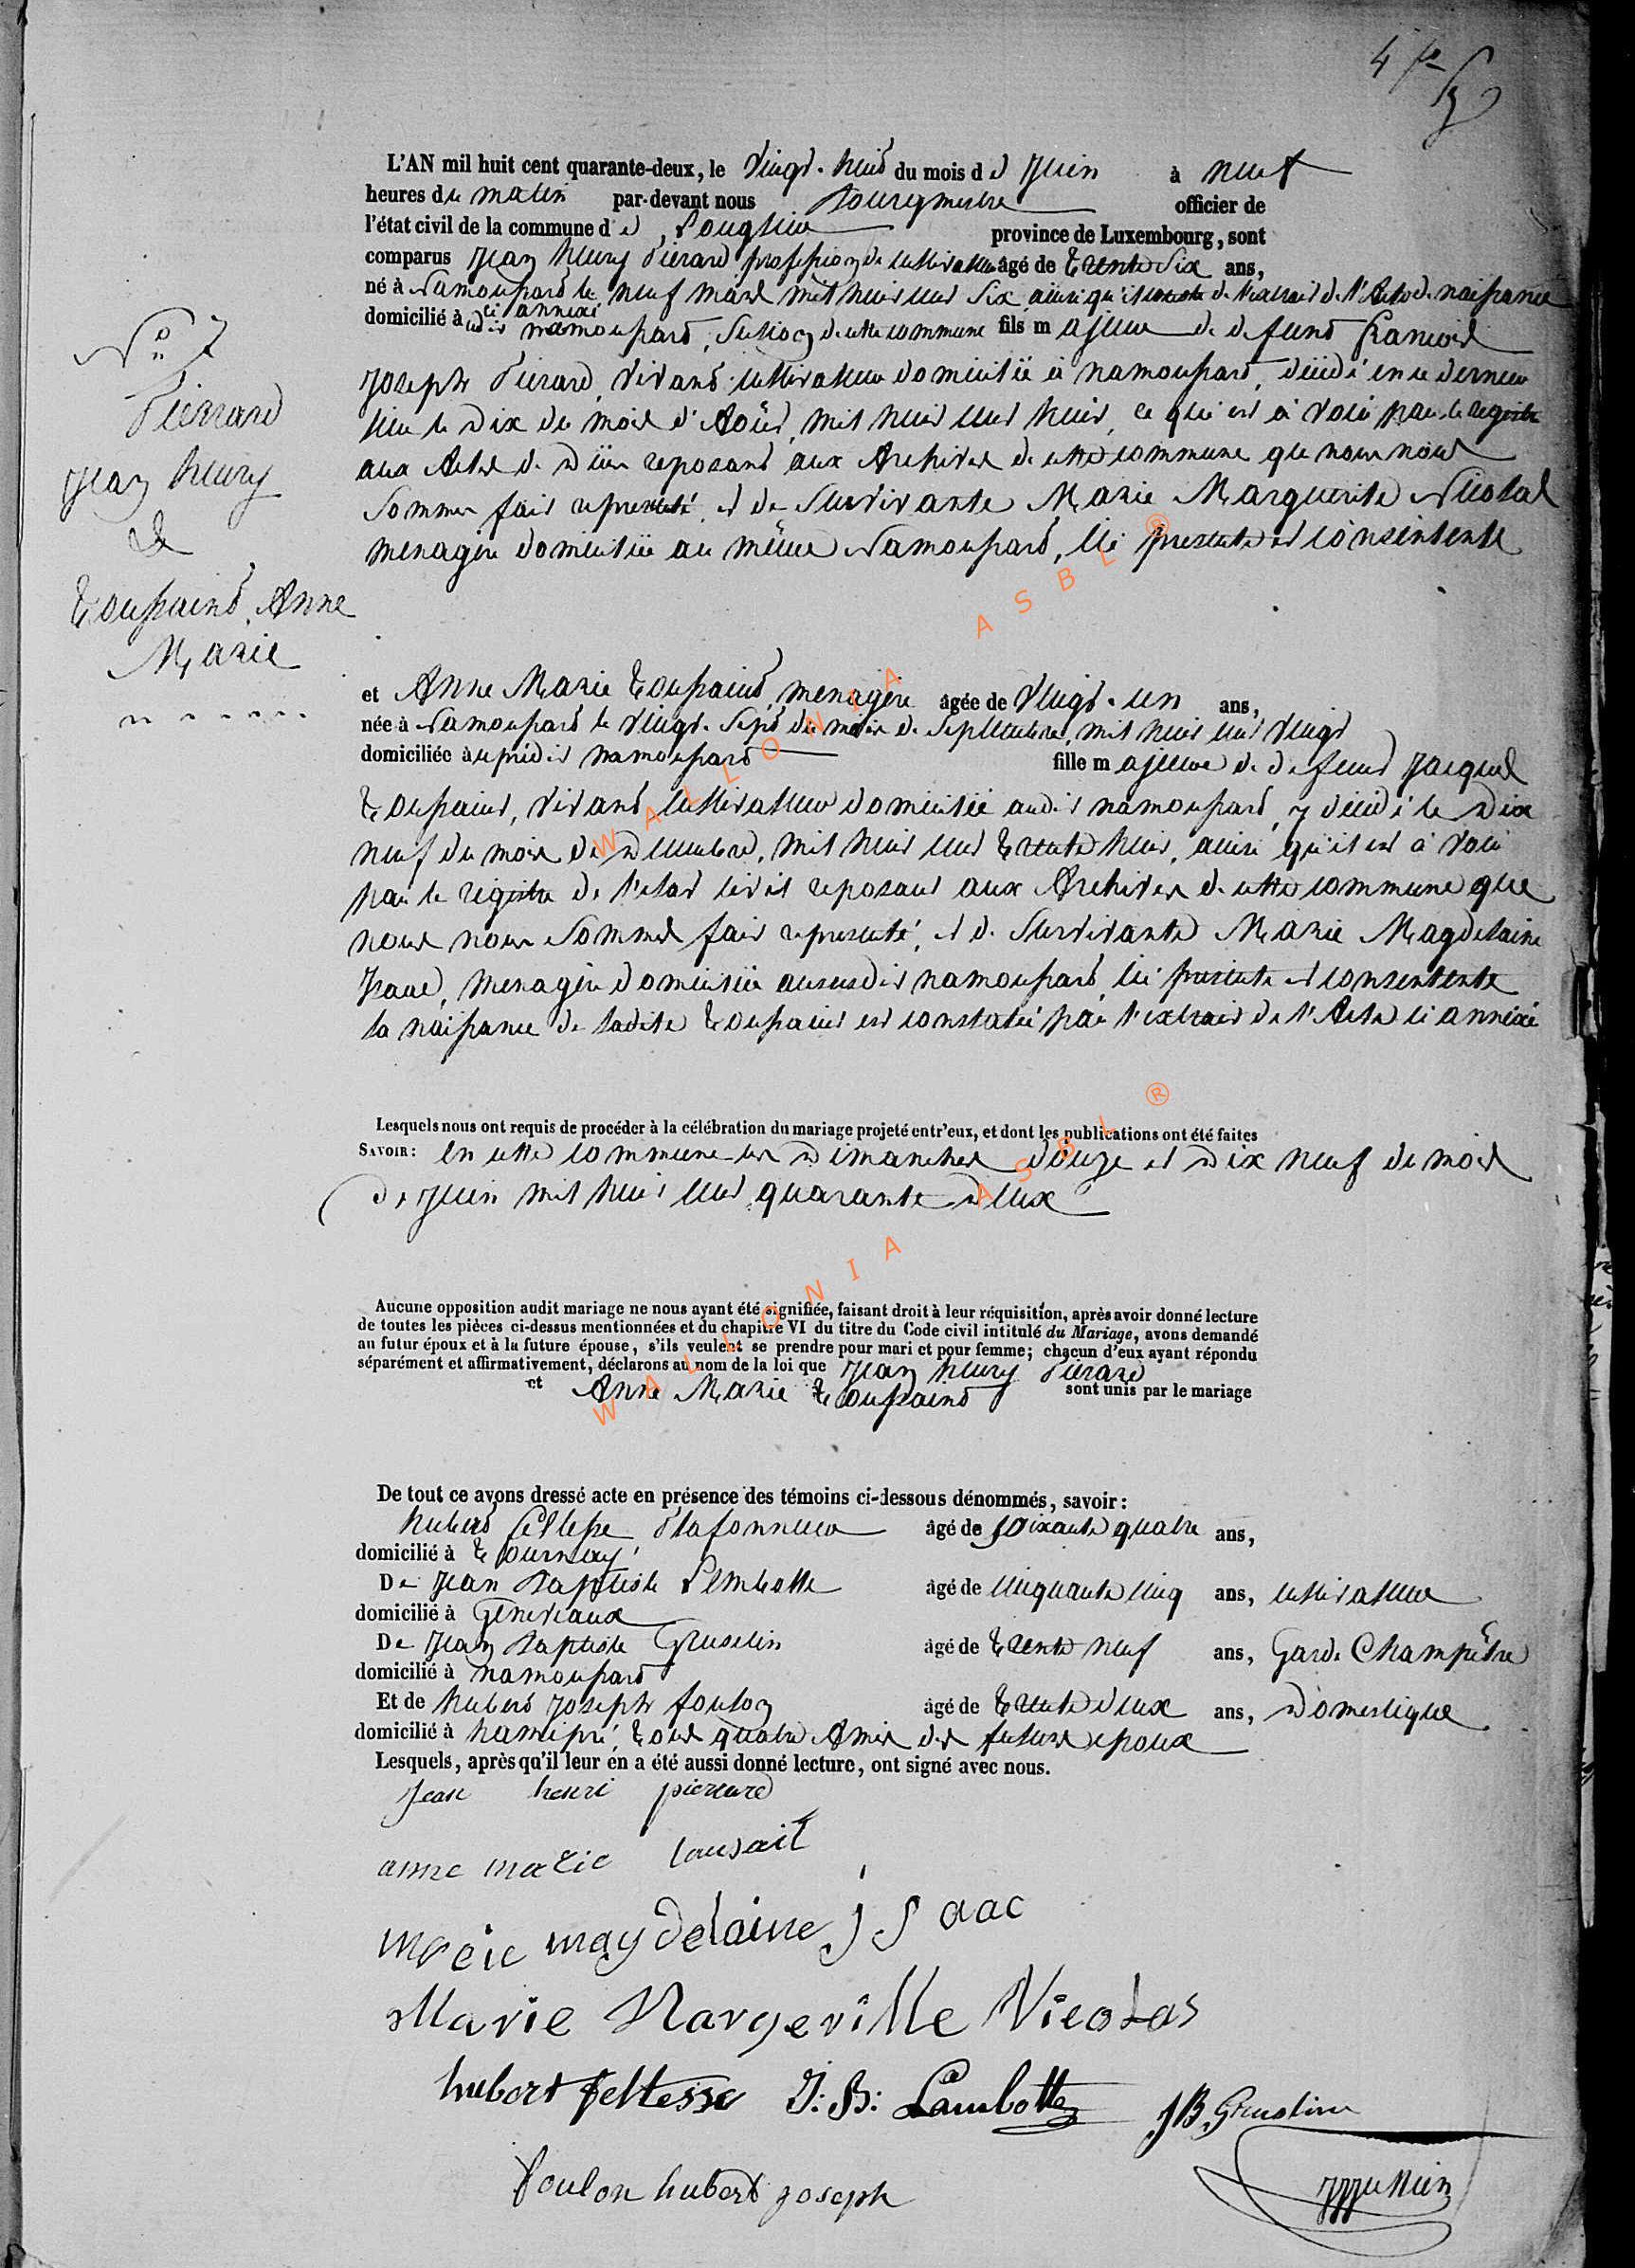 4
L'AN mil huit cent quarante-deux, le Vingt-huit du mois de Juin à neuf
heures du matin par-devant nous Bourgmestre officier de
l'état civil de la commune de Longlier province de Luxembourg, sont
comparus Jean henry Pierard profession de cultivateur âgé de Trente Six ans,
né à Namoussard le neuf mars mil huit cent Six, ainsi qu'il conste de l'extrait de l'Acte de naissance
ci annexé
domicilié à dit namoussard, Section de cette commune fils majeur de defunt francois
Joseph Pierard, vivant cultivateur domicilié à namoussard, décédé en ce dernier
lieu le Dix du mois d'Août, mil huit cent huit, ce qui est à voir par le registre
aux Actes de Décès reposant aux Archives de cette commune que nous nous
Sommes fait representé, et de Survivante Marie Marguerite Nicolas
menagère domiciliée au même Namoussard, ici presente et consentente
N° 7
Pierrard
Jean henry
&
Toussaint, Anne
Marie
et Anne Marie Toussaint, menagère âgée de Vingt-un ans,
née à Namoussard le Vingt-Sept du mois de Septembre, mil huit cent Vingt
domiciliée à prédit namoussard fille majeure de defunt Jacques
Toussaint, vivant cultivateur domicilié audit namoussard, y décédé le Dix
neuf du mois de Decembre, mil huit cent Trente huit, ainsi qu'il est à voir
par le régistre de l'état civil reposant aux Archives de cette commune que
nous nous Sommes fait representé, et de Survivante Marie Magdelaine
Isaac, menagère domiciliée aususdit namoussard, ici presente et consentente
la naissance de ladite Toussaint est constatée par l'extrait de l'Acte ci annexé
Lesquels nous ont requis de procéder à la célébration du mariage projeté entr'eux, et dont les publications ont été faites
SAVOIR: En cette commune les Dimanches douze et Dix neuf du mois
de Juin mil huit cent quarante Deux
Aucune opposition audit mariage ne nous ayant été signifiée, faisant droit à leur réquisition, après avoir donné lecture
de toutes les pièces ci-dessus mentionnées et du chapitre VI du titre du Code civil intitulé du Mariage, avons demandé
au futur époux et à la future épouse, s'ils veulent se prendre pour mari et pour femme; chacun d'eux ayant répondu
séparément et affirmativement, déclarons au nom de la loi que Jean henry Pierard
et Anne Marie Toussaint sont unis par le mariage
De tout ce avons dressé acte en présence des témoins ci-dessous dénommés, savoir:
hubert feltesse Plafonneur âgé de Soixante quatre ans,
domicilié à Tournay
De Jean Baptiste Lambotte âgé de Cinquante Cinq ans, cultivateur
domicilié à Gérimeaux
De Jean Baptiste Gruselin âgé de Trente neuf ans, Garde Champêtre
domicilié à namoussard
Et de hubert Joseph foulon âgé de Trente deux ans, Domestique
domicilié à hamipré, Tous quatre Amis des futurs epoux
Lesquels, après qu'il leur en a été aussi donné lecture, ont signé avec nous.
Jean henri pierard
anne marie tousait
marie magdelaine isaac
Marie Margeritte Nicolas
hubert feltesse J: B: Lambotte JB. Gruslin
foulon hubert joseph
WALLONIA ASBL ®
WALLONIA ASBL ®